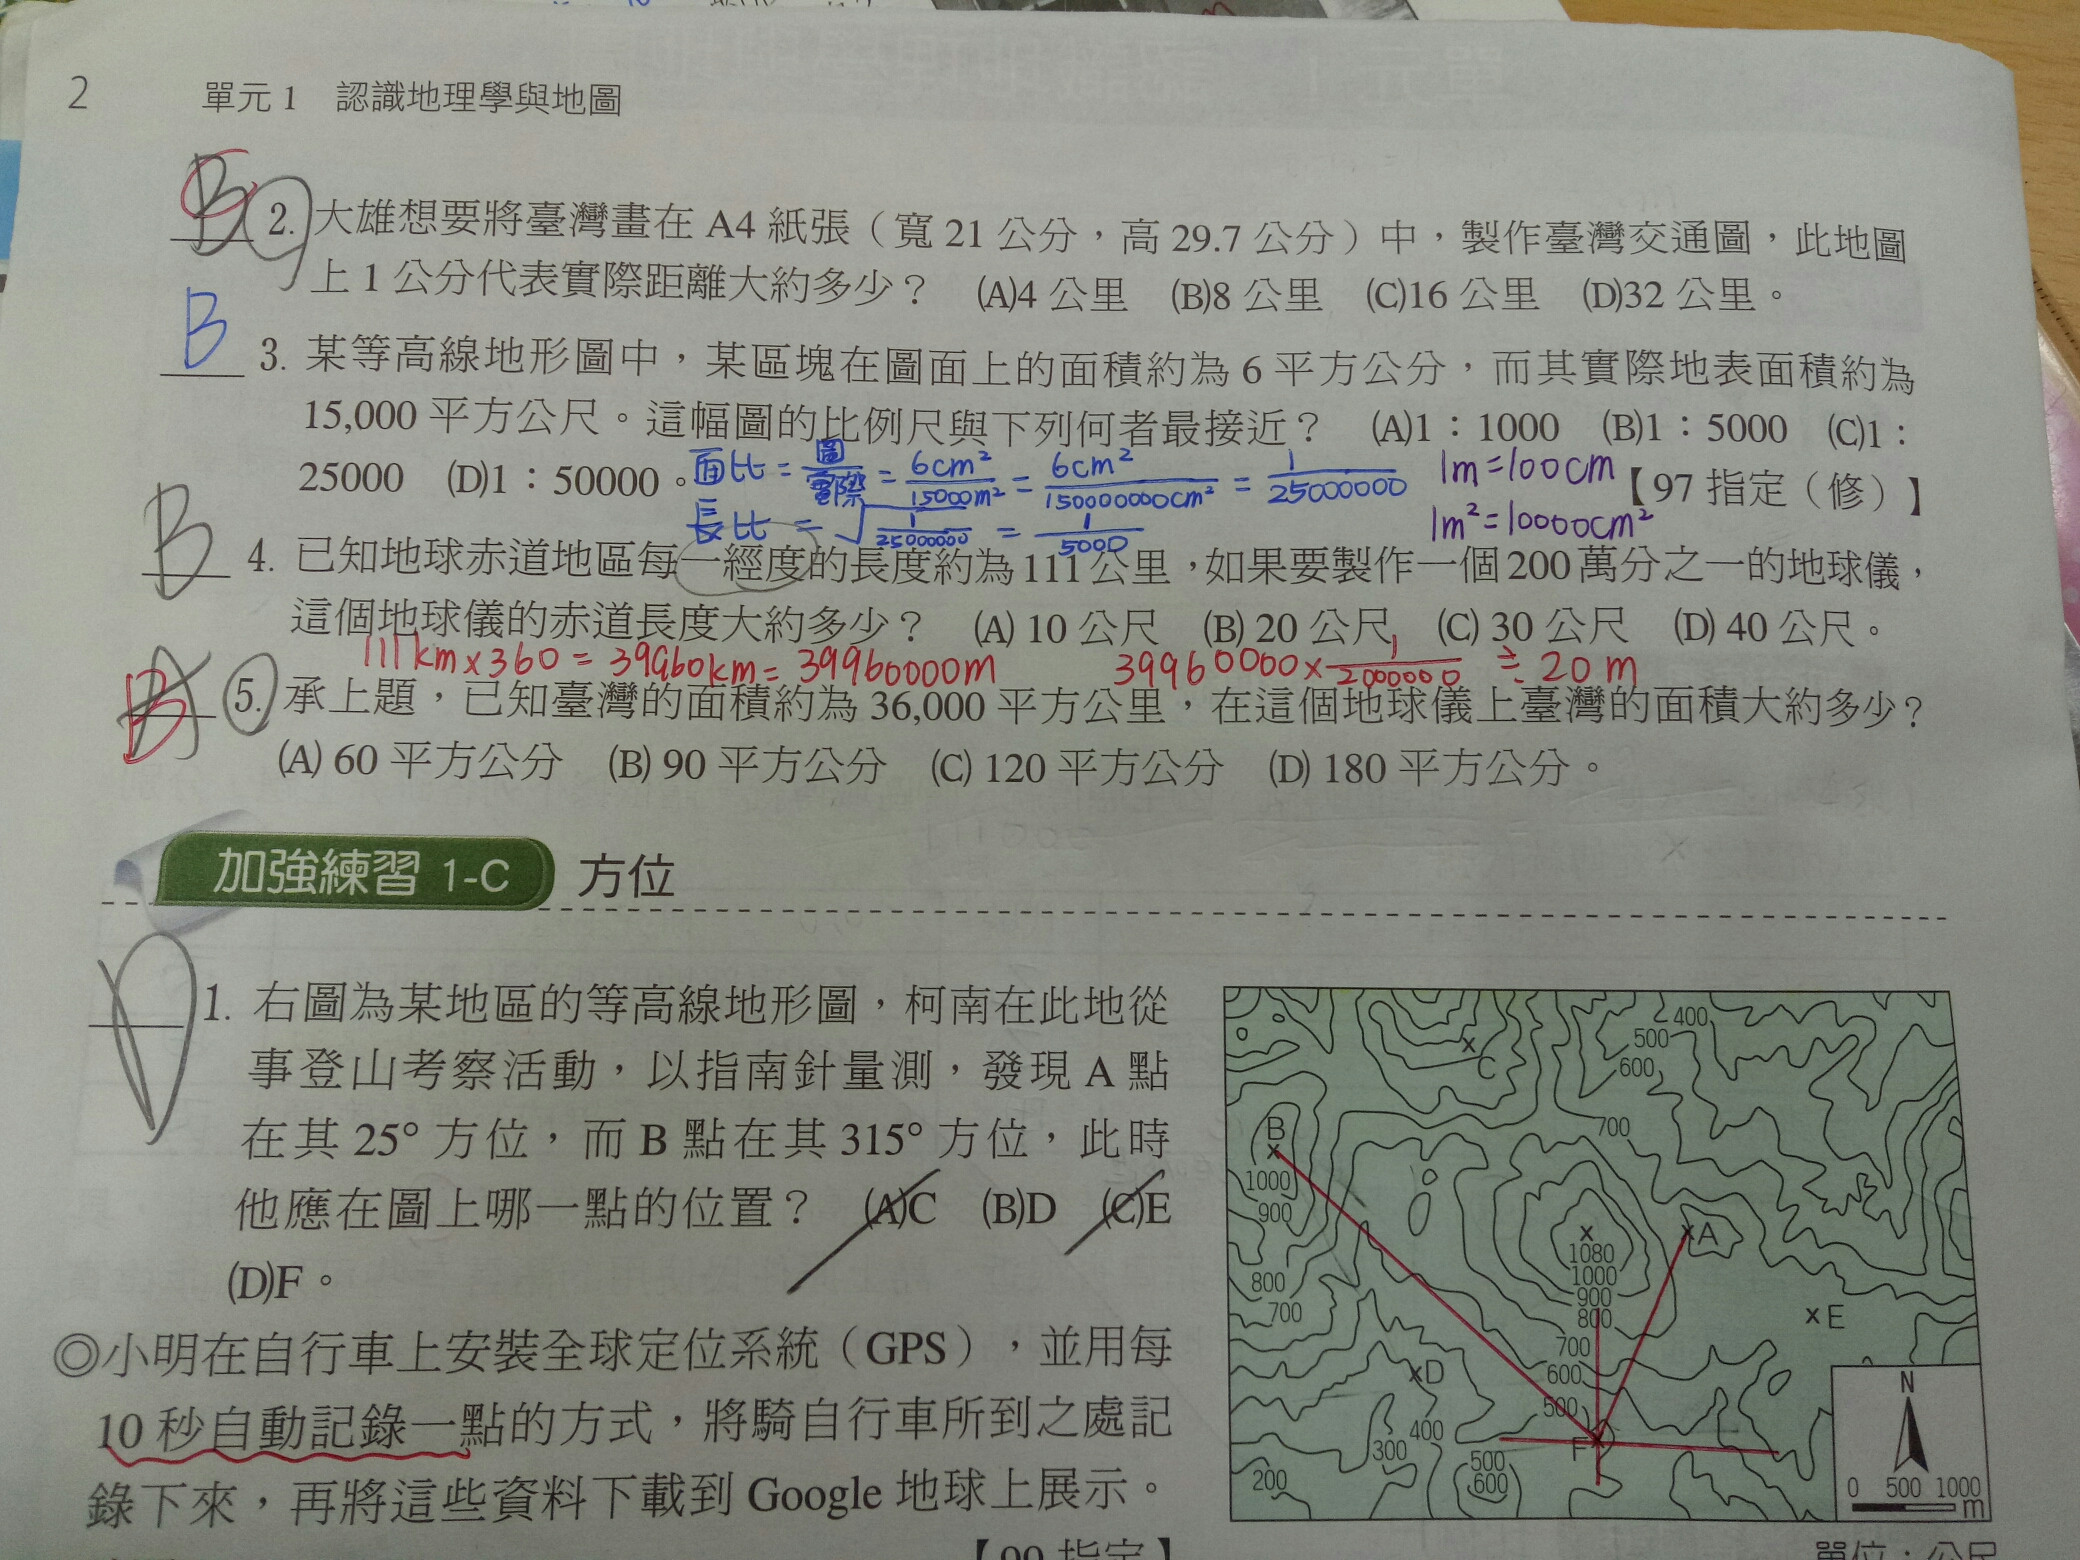 2 單元 1 認識地理學與地圖
B 2. 大雄想要將臺灣畫在 A4 紙張（寬 21 公分，高 29.7 公分）中，製作臺灣交通圖，此地圖
上 1 公分代表實際距離大約多少？ (A)4 公里 (B)8 公里 (C)16 公里 (D)32 公里。
B 3. 某等高線地形圖中，某區塊在圖面上的面積約為 6 平方公分，而其實際地表面積約為
15,000 平方公尺。這幅圖的比例尺與下列何者最接近？ (A)1：1000 (B)1：5000 (C)1：
25000 (D)1：50000。 【97 指定（修）】
面比 = 圖/實際 = 6cm²/15000m² = 6cm²/150000000cm² = 1/25000000 1m=100cm
長比 = √1/25000000 = 1/5000 1m²=10000cm²
B 4. 已知地球赤道地區每一經度的長度約為 111 公里，如果要製作一個 200 萬分之一的地球儀，
這個地球儀的赤道長度大約多少？ (A) 10 公尺 (B) 20 公尺 (C) 30 公尺 (D) 40 公尺。
111km×360 = 39960km = 39960000m 39960000×1/2000000 ≒ 20m
B 5. 承上題，已知臺灣的面積約為 36,000 平方公里，在這個地球儀上臺灣的面積大約多少？
(A) 60 平方公分 (B) 90 平方公分 (C) 120 平方公分 (D) 180 平方公分。
加強練習 1-C 方位
D 1. 右圖為某地區的等高線地形圖，柯南在此地從
事登山考察活動，以指南針量測，發現 A 點
在其 25° 方位，而 B 點在其 315° 方位，此時
他應在圖上哪一點的位置？ (A)C (B)D (C)E
(D)F。
◎小明在自行車上安裝全球定位系統（GPS），並用每
10 秒自動記錄一點的方式，將騎自行車所到之處記
錄下來，再將這些資料下載到 Google 地球上展示。
【99 指定】
400
500
600
C
700
B
1000
900
A
1080
1000
900
800
800
700
E
700
600
D
500
400
300
F
500
600
200
N
0 500 1000
m
單位：公尺